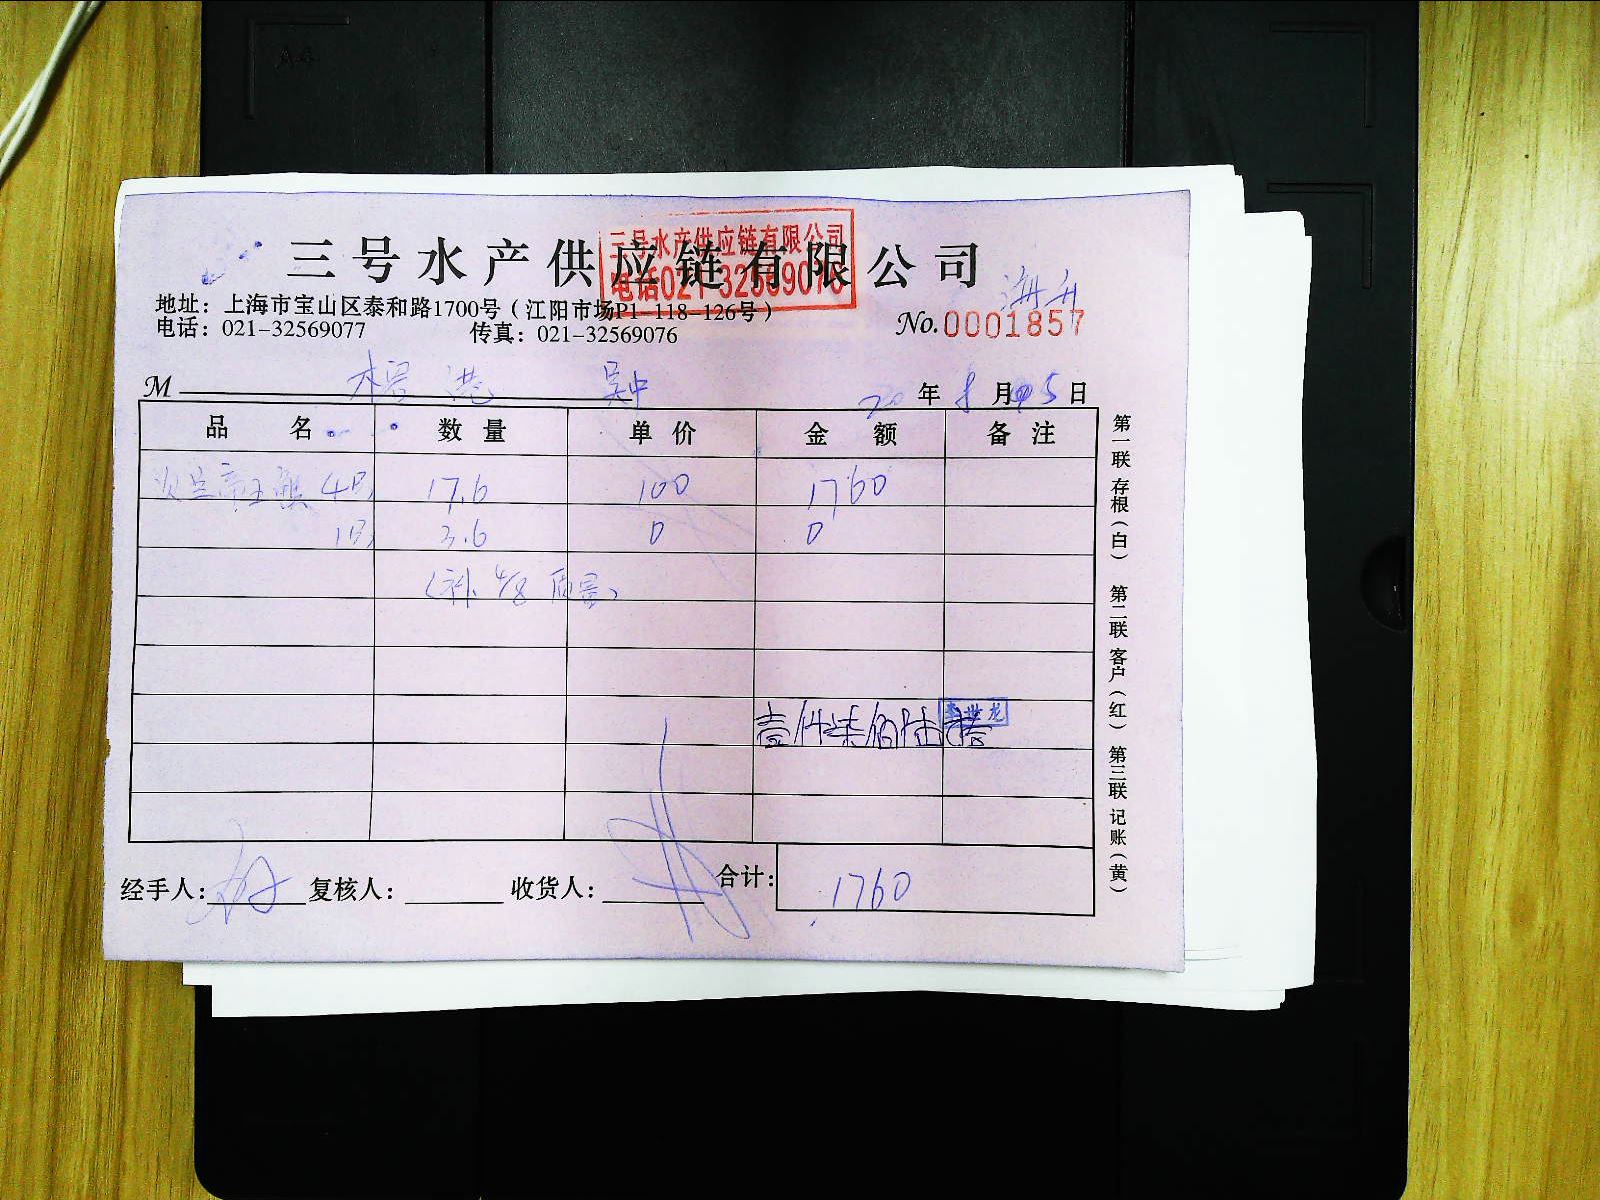 三号水产供应链有限公司
三号水产供应链有限公司
电话021-32569076
地址：上海市宝山区泰和路1700号（江阳市场P1-118-126号）
电话：021-32569077 传真：021-32569076
No.0001857
M 港 吴中 20年8月5日
品名 数量 单价 金额 备注
帝王蟹 4只 17.6 100 1760
1只 3.6 0 0
（补 4/8 质量）
壹仟柒佰陆拾
李世龙
经手人： 复核人： 收货人： 合计： 1760
第一联 存根（白） 第二联 客户（红） 第三联 记账（黄）